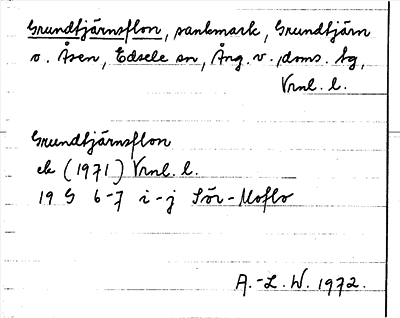 Grundtjärnsflon, sankmark, Grundtjärn
o. Åsen, Edsele sn, Ång. v. doms. tg,
Vrnl. l.
Grundtjärnsflon
ek (1971) Vrnl. l.
19 G 6-7 i-j Sör-Moflo
A.-L. W. 1972.